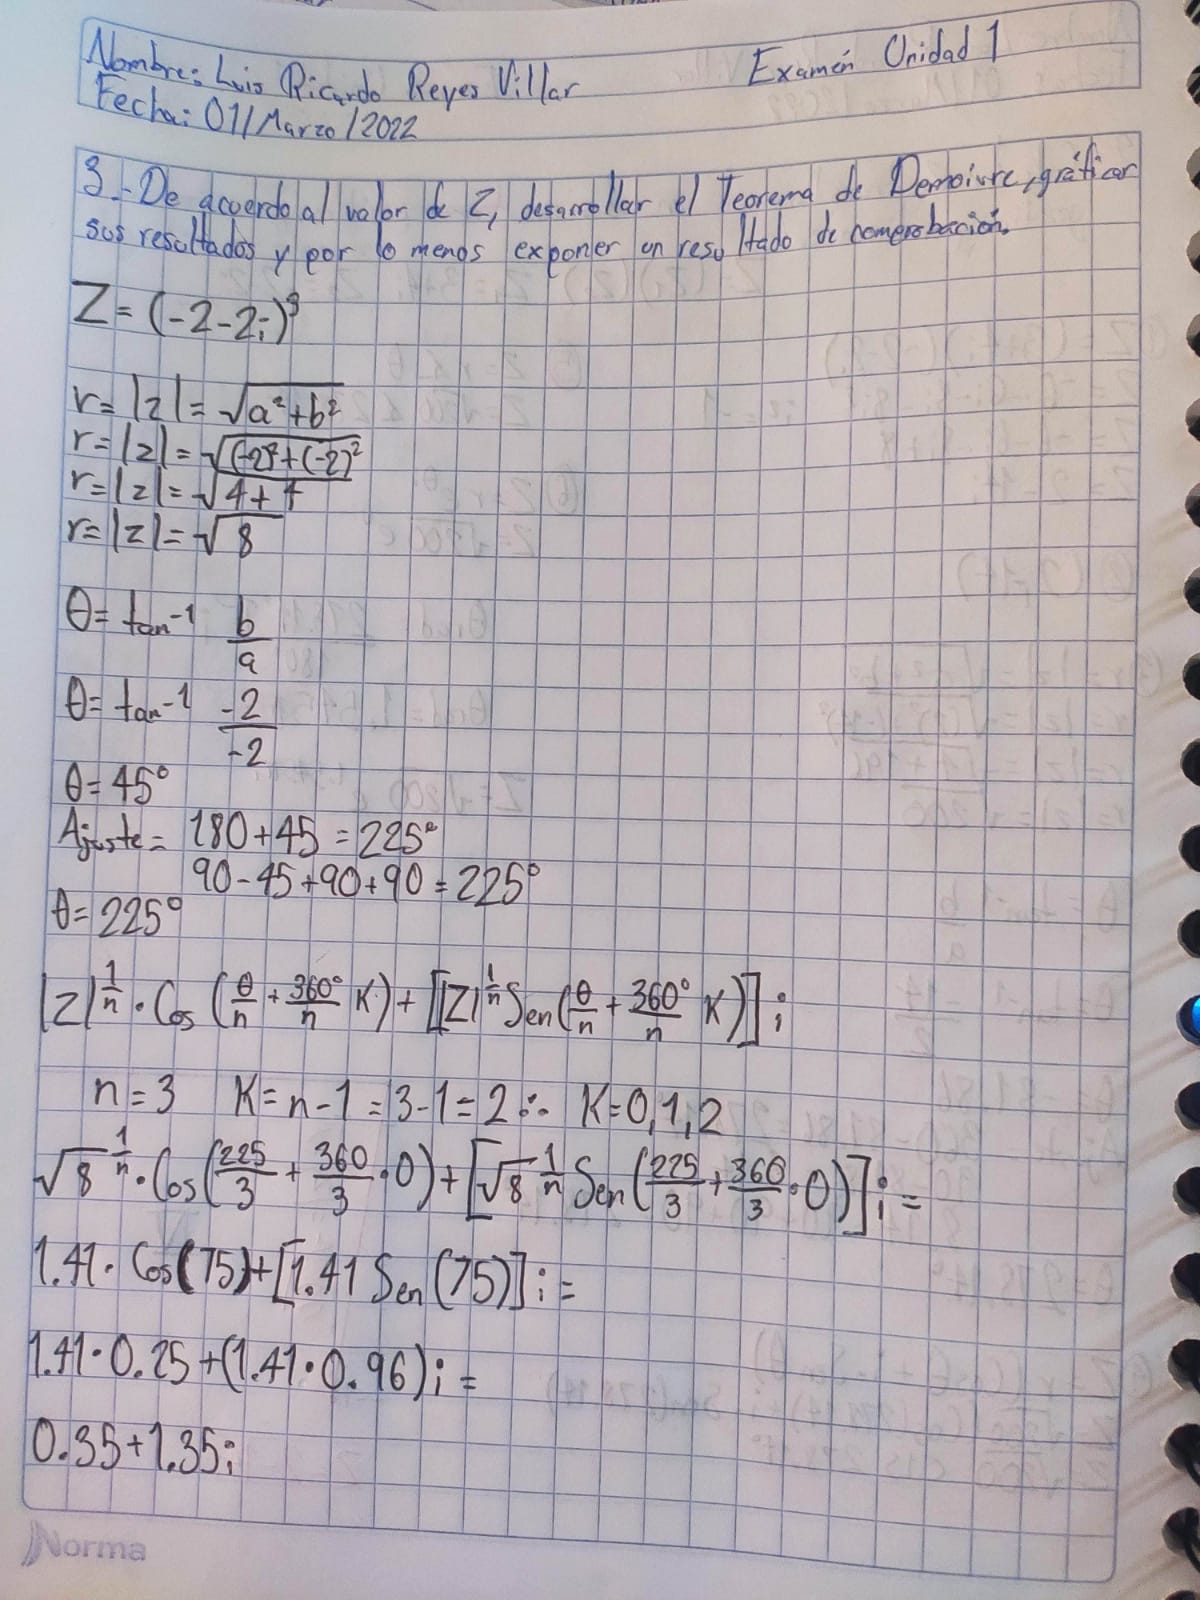 Nombre: Luis Ricardo Reyes Villar Examén Unidad 1
Fecha: 01/Marzo/2022
3.- De acuerdo al valor de Z, desarrollar el Teorema de Demoivre, gráficar
sus resultados y por lo menos exponer un resultado de comprobación.
Z = (-2-2i)³
r = |z| = √(a²+b²)
r = |z| = √((-2)²+(-2)²)
r = |z| = √(4+4)
r = |z| = √8
θ = tan⁻¹ b/a
θ = tan⁻¹ -2/-2
θ = 45°
Ajuste = 180+45 = 225°
90-45+90+90 = 225°
θ = 225°
|z|^(1/n) · Cos (θ/n + 360°/n K) + [|Z|^(1/n) Sen (θ/n + 360°/n K)] i
n = 3 K = n-1 = 3-1 = 2 ∴ K = 0,1,2
√8^(1/n) · Cos (225/3 + 360/3 · 0) + [√8^(1/n) Sen (225/3 + 360/3 · 0)] i =
1.41 · Cos(75) + [1.41 Sen (75)] i =
1.41 · 0.25 + (1.41 · 0.96) i =
0.35 + 1.35i
Norma